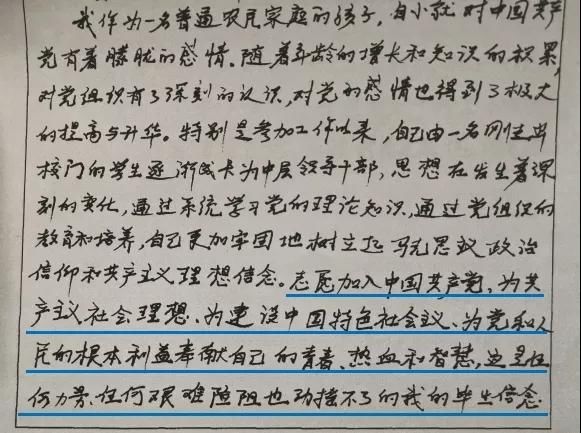 我作为一名普通农民家庭的孩子，自小就对中国共产
党有着朦胧的感情。随着年龄的增长和知识的积累，
对党组织有了深刻的认识，对党的感情也得到了极大
的提高与升华。特别是参加工作以来，自己由一名刚走出
校门的学生逐渐成长为中层领导干部，思想在发生着深
刻的变化，通过系统学习党的理论知识，通过党组织的
教育和培养，自己更加牢固地树立起马克思主义政治
信仰和共产主义理想信念。志愿加入中国共产党，为共
产主义社会理想、为建设中国特色社会主义、为党和人
民的根本利益奉献自己的青春、热血和智慧，这是任
何力量、任何艰难险阻也动摇不了的我的毕生信念